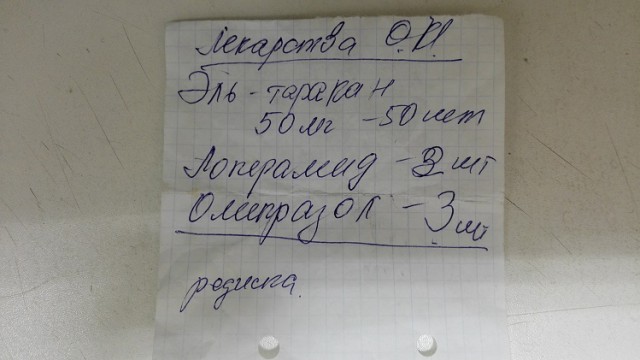 Лекарства О.И.
Эль-таракан
50 мг - 50 шт
Лоперамид - 2 шт
Омепразол - 3 шт
редиска.